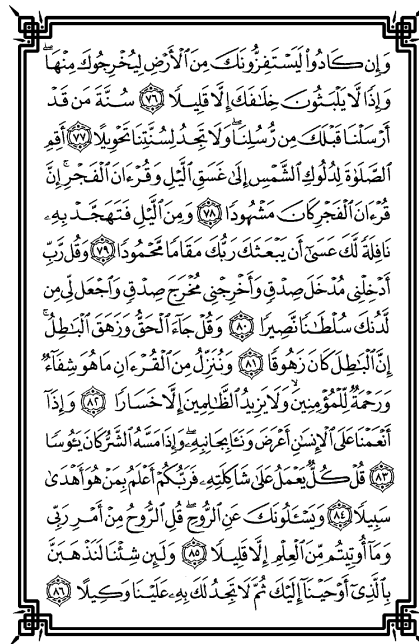 وَإِن كَادُوا۟ لَيَسْتَفِزُّونَكَ مِنَ ٱلْأَرْضِ لِيُخْرِجُوكَ مِنْهَا ۖ
وَإِذًا لَّا يَلْبَثُونَ خِلَـٰفَكَ إِلَّا قَلِيلًا ٧٦ سُنَّةَ مَن قَدْ
أَرْسَلْنَا قَبْلَكَ مِن رُّسُلِنَا ۖ وَلَا تَجِدُ لِسُنَّتِنَا تَحْوِيلًا ٧٧ أَقِمِ
ٱلصَّلَوٰةَ لِدُلُوكِ ٱلشَّمْسِ إِلَىٰ غَسَقِ ٱلَّيْلِ وَقُرْءَانَ ٱلْفَجْرِ ۖ إِنَّ
قُرْءَانَ ٱلْفَجْرِ كَانَ مَشْهُودًا ٧٨ وَمِنَ ٱلَّيْلِ فَتَهَجَّدْ بِهِۦ
نَافِلَةً لَّكَ عَسَىٰٓ أَن يَبْعَثَكَ رَبُّكَ مَقَامًا مَّحْمُودًا ٧٩ وَقُل رَّبِّ
أَدْخِلْنِى مُدْخَلَ صِدْقٍ وَأَخْرِجْنِى مُخْرَجَ صِدْقٍ وَٱجْعَل لِّى مِن
لَّدُنكَ سُلْطَـٰنًا نَّصِيرًا ٨٠ وَقُلْ جَآءَ ٱلْحَقُّ وَزَهَقَ ٱلْبَـٰطِلُ ۚ
إِنَّ ٱلْبَـٰطِلَ كَانَ زَهُوقًا ٨١ وَنُنَزِّلُ مِنَ ٱلْقُرْءَانِ مَا هُوَ شِفَآءٌ
وَرَحْمَةٌ لِّلْمُؤْمِنِينَ ۙ وَلَا يَزِيدُ ٱلظَّـٰلِمِينَ إِلَّا خَسَارًا ٨٢ وَإِذَآ
أَنْعَمْنَا عَلَى ٱلْإِنسَـٰنِ أَعْرَضَ وَنَـَٔا بِجَانِبِهِۦ ۖ وَإِذَا مَسَّهُ ٱلشَّرُّ كَانَ يَـُٔوسًا
٨٣ قُلْ كُلٌّ يَعْمَلُ عَلَىٰ شَاكِلَتِهِۦ فَرَبُّكُمْ أَعْلَمُ بِمَنْ هُوَ أَهْدَىٰ
سَبِيلًا ٨٤ وَيَسْـَٔلُونَكَ عَنِ ٱلرُّوحِ ۖ قُلِ ٱلرُّوحُ مِنْ أَمْرِ رَبِّى
وَمَآ أُوتِيتُم مِّنَ ٱلْعِلْمِ إِلَّا قَلِيلًا ٨٥ وَلَئِن شِئْنَا لَنَذْهَبَنَّ
بِٱلَّذِىٓ أَوْحَيْنَآ إِلَيْكَ ثُمَّ لَا تَجِدُ لَكَ بِهِۦ عَلَيْنَا وَكِيلًا ٨٦